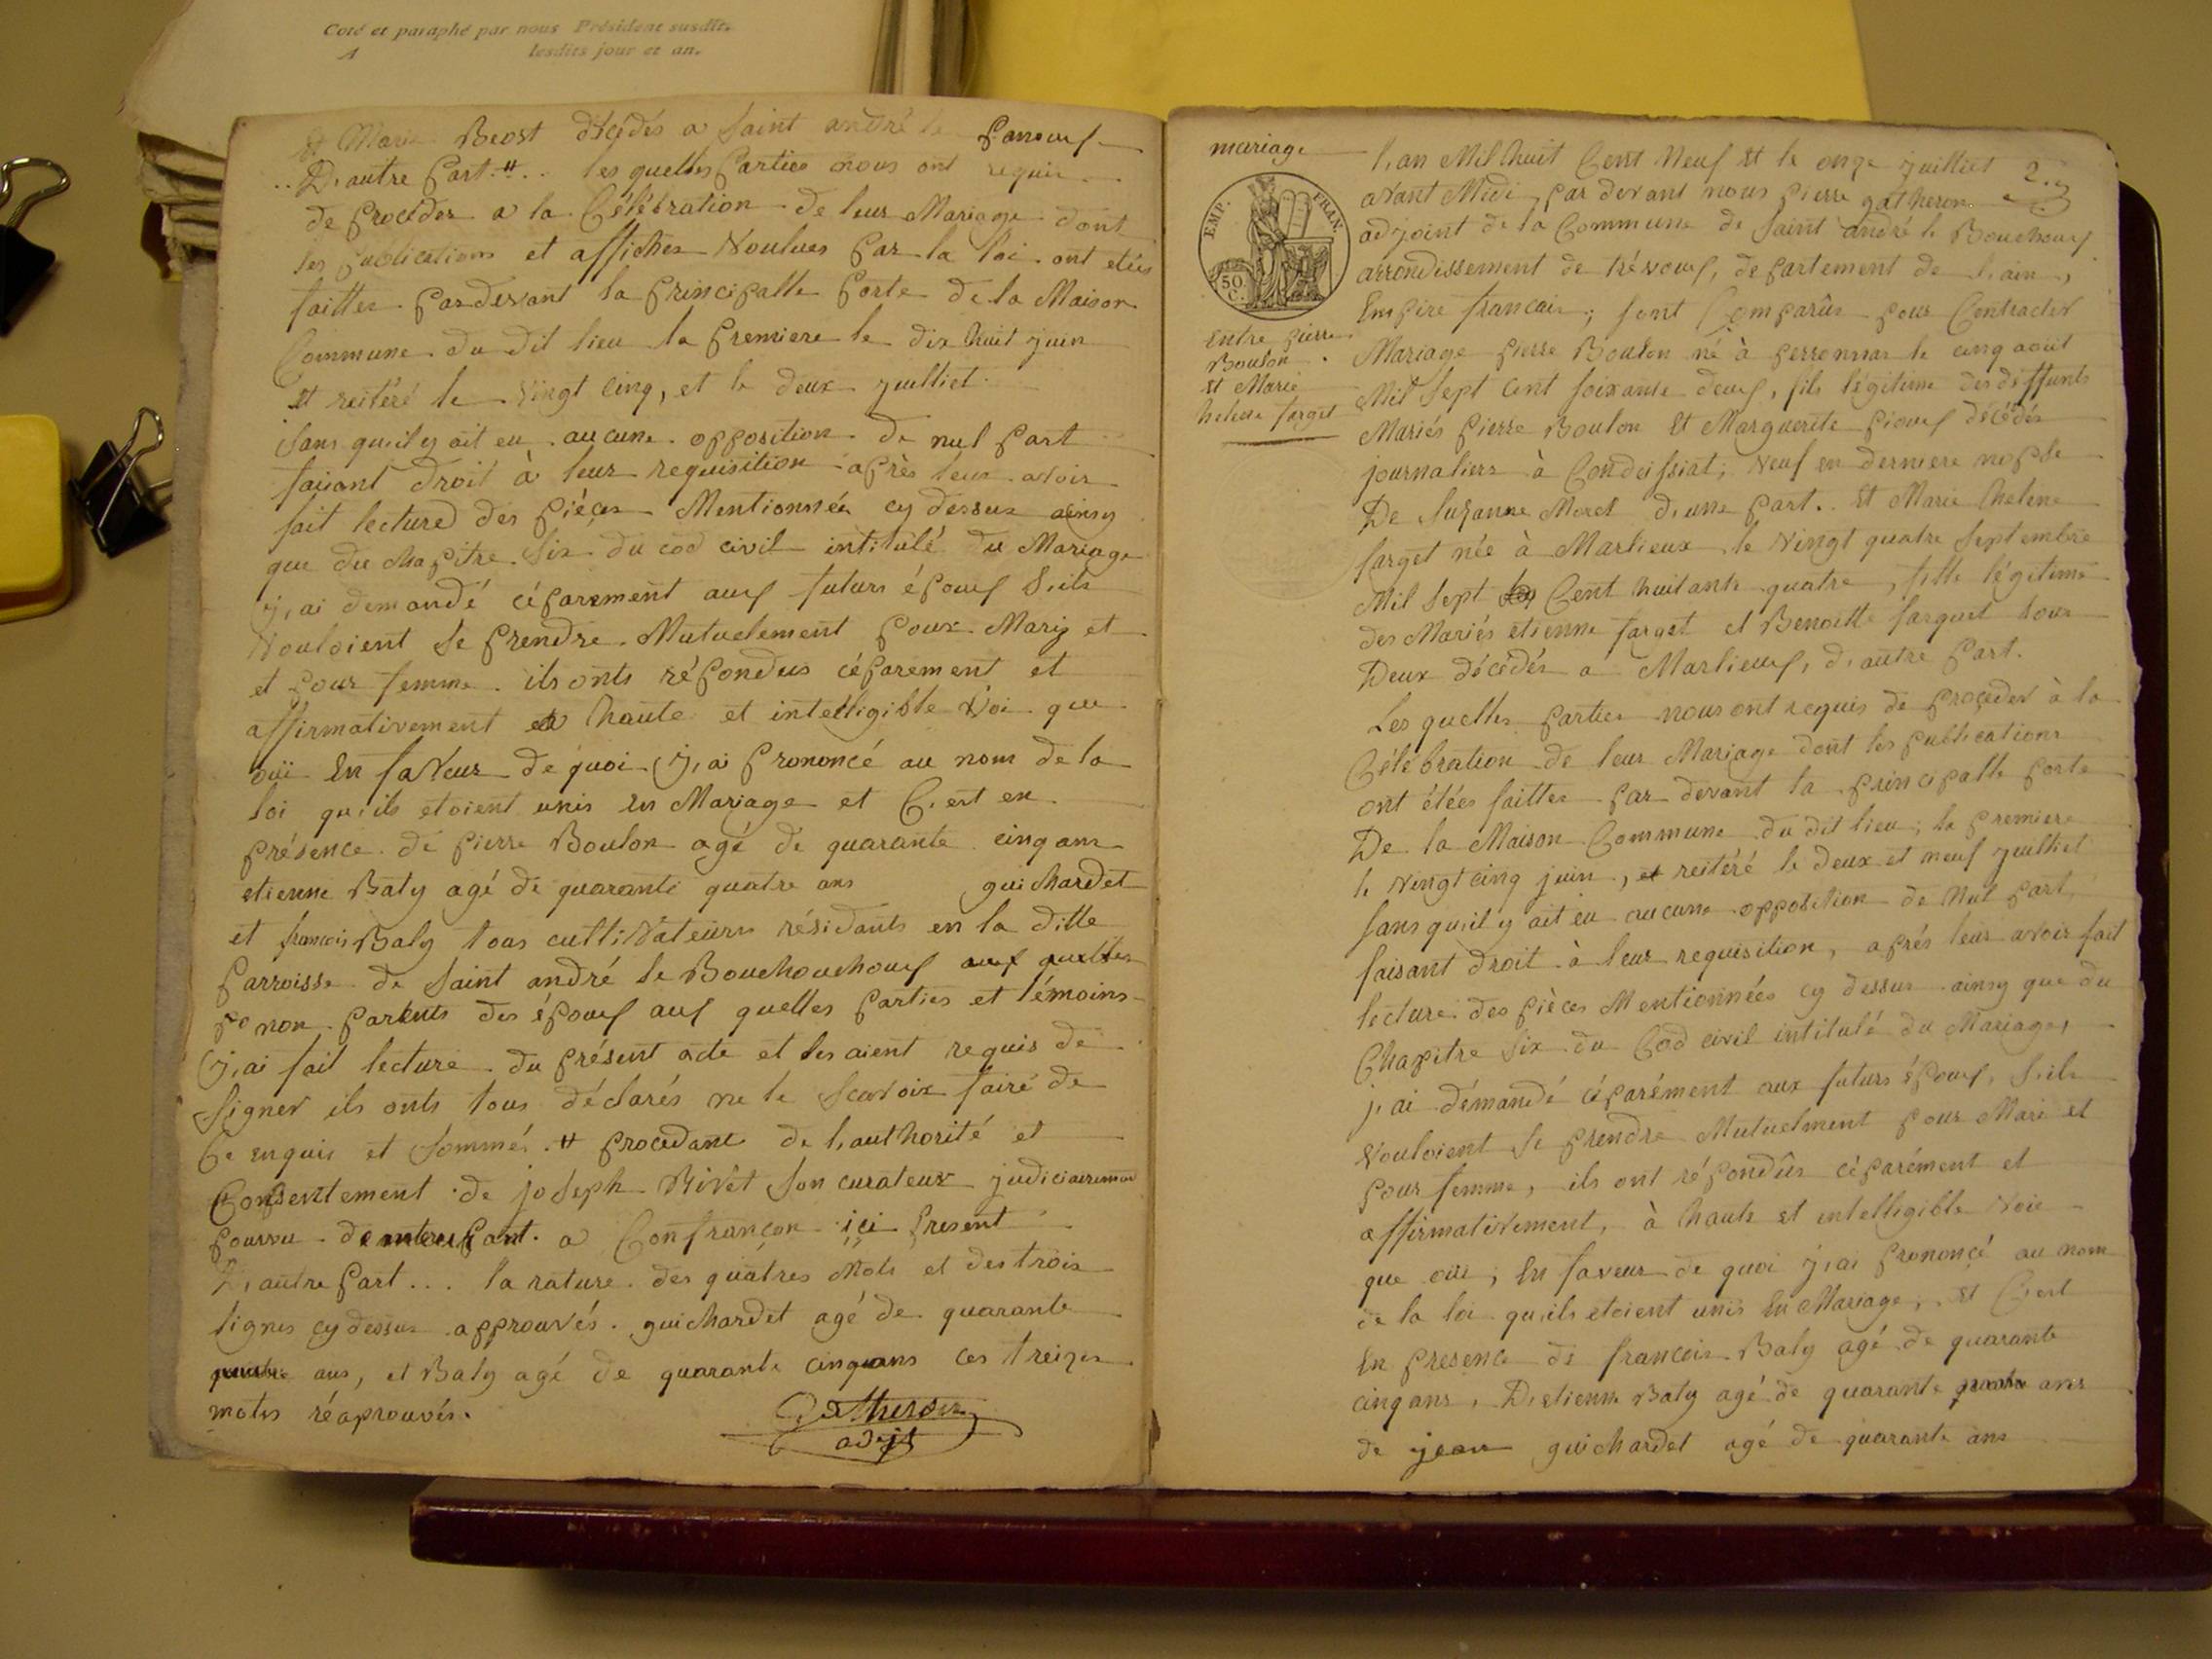 Coté et paraphé par nous Président susdit.
1 lesdits jour et an.
et Marie Beost décédés a saint andré le panoux
D'autre part. # les quelles parties nous ont requis
de procéder a la Célébration de leur Mariage dont
les publications et affiches Voulues par la loi ont etées
faittes pardevant la principalle porte de la Maison
Commune du dit lieu la premiere le dix huit juin
et reitéré le vingt cinq, et le deux juilliet
sans qu'il y ait eu aucune opposition de nul part
faisant droit à leur requisition après leur avoir
fait lectured des piéces Mentionnées cy dessus ainsy
que du chapitre six du cod civil intitulé du Mariage
j'ai demandé céparement aux futurs époux s'ils
Vouloient se prendre Mutuelement pour Mary et
et pour femme. ils onts répondus céparement et
affirmativement a haute et intelligible Voi que
oüi En faveur de quoi j'ai prononcé au nom de la
loi qu'ils etoient unis en Mariage et C'est en
présence de pierre Boulon agé de quarante cinq ans
etienne Baty agé de quarante quatre ans guichardet
et francois Baty tous cultivateurs résidants en la ditte
parroisse de saint andré le Bouchouchoux aux quelles
non parents des époux aux quelles parties et témoins
j'ai fait lecture du présent acte et les aient requis de
signer ils onts tous déclarés ne le scavoir faire de
Ce enquis et sommés. # procedant de l'authorité et
Consentement de joseph Rivet son curateur judiciairement
pourvu a Confrançon ici present
D'autre part... la rature des quatres Mots et des trois
lignes cy dessus approuvés. guichardet agé de quarante
ans, et Baty agé de quarante cinq ans ces treizes
mots réaprouvés.
Gatheron
adjt
mariage
EMP. FRAN.
50 C.
Entre pierre
Boulon
et Marie
helene farget
2.
l'an Mil huit Cent Neuf et le onze juilliet
avant Midi par devant nous pierre gatheron
adjoint de la Commune de saint andré le Bouchoux
arrondissement de trévoux, departement de l'ain,
Empire francais; sont Comparûs pour Contracter
Mariage pierre Boulon né à perronnas le cinq août
Mil sept cent soixante deux, fils légitime des deffunts
Mariés pierre Boulon et Marguerite pioux décédés
journaliers à Condeissiat; Veuf en derniere nopse
De Suzanne Morel d'une part. Et Marie helene
farget née à Marlieux le Vingt quatre septembre
Mil sept Cent huitante quatre, fille légitime
des Mariés etienne farget et Benoitte farguet tous
Deux décédés a Marlieux, d'autre part.
Les quelles parties nous ont requis de proceder à la
Célébration de leur Mariage dont les publications
ont étées faittes par devant la principalle porte
De la Maison Commune du dit lieu; la premiere
le Vingt cinq juin, et reitéré le deux et neuf juilliet
sans qu'il y ait eu aucune opposition de Nul part
faisant droit à leur requisition, aprés leur avoir fait
lecture des pièces Mentionnées cy dessus ainsy que du
Chapitre six du Cod civil intitulé du Mariage,
j'ai démandé céparément aux futurs époux, s'ils
Vouloient se prendre Mutuelment pour Mari et
pour femme, ils ont répondûs céparément et
affirmativement, à haute et intelligible Voie
que oüi, En faveur de quoi j'ai prononcé au nom
de la loi qu'ils etoient unis En Mariage, et C'est
En presence de francois Baty agé de quarante
cinq ans, D'etienne Baty agé de quarante quatre ans
de jean guichardet agé de quarante ans